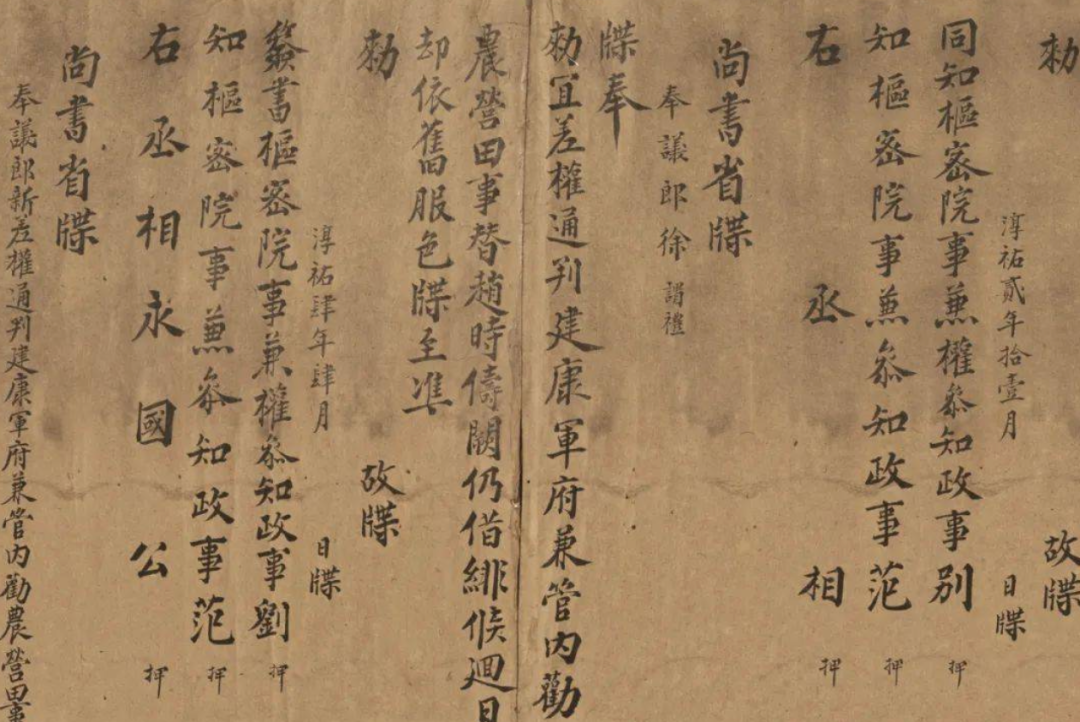 勑 故牒
淳祐貳年拾壹月 日牒
同知樞密院事兼權參知政事別 押
知樞密院事兼參知政事范 押
右丞相 押
尚書省牒
奉議郎徐謂禮
牒奉
勑宜差權通判建康軍府兼管內勸
農營田事替趙時儔闕仍借緋候迴日
却依舊服色牒至准
勑 故牒
淳祐肆年肆月 日牒
簽書樞密院事兼權參知政事劉 押
知樞密院事兼參知政事范 押
右丞相永國公 押
尚書省牒
奉議郎新差權通判建康軍府兼管內勸農營田事